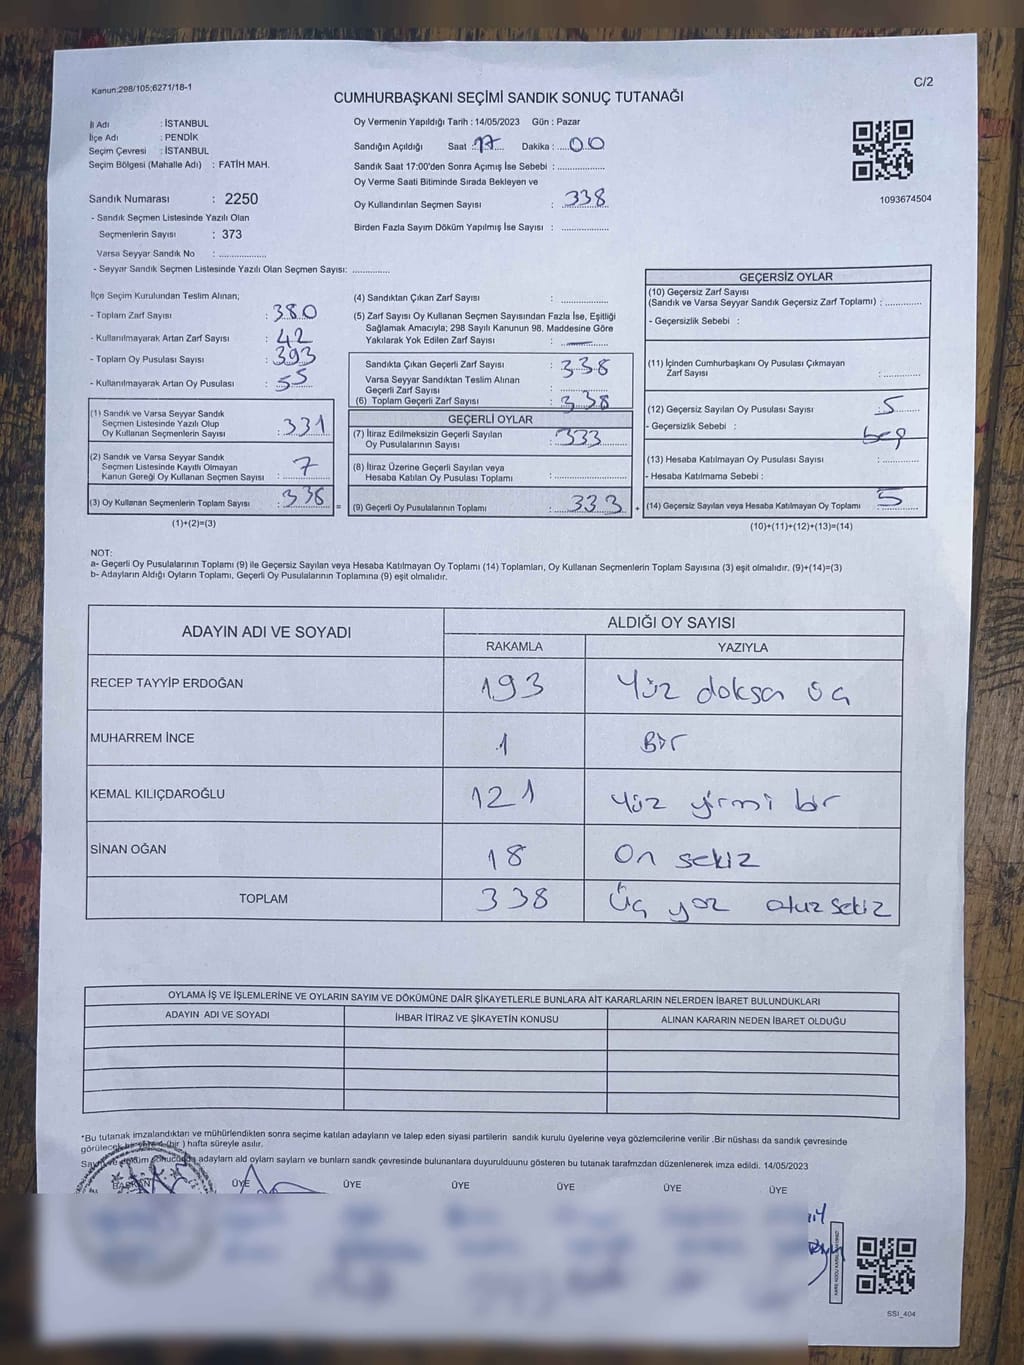 Kanun:298/105;6271/18-1
C/2
CUMHURBAŞKANI SEÇİMİ SANDIK SONUÇ TUTANAĞI
İl Adı : İSTANBUL
İlçe Adı : PENDİK
Seçim Çevresi : İSTANBUL
Seçim Bölgesi (Mahalle Adı) : FATİH MAH.
Sandık Numarası : 2250
- Sandık Seçmen Listesinde Yazılı Olan
Seçmenlerin Sayısı : 373
Varsa Seyyar Sandık No : ..................
- Seyyar Sandık Seçmen Listesinde Yazılı Olan Seçmen Sayısı: ..............
Oy Vermenin Yapıldığı Tarih : 14/05/2023 Gün : Pazar
Sandığın Açıldığı Saat : 17 Dakika : 00
Sandık Saat 17:00'den Sonra Açımış İse Sebebi : ..................
Oy Verme Saati Bitiminde Sırada Bekleyen ve
Oy Kullandırılan Seçmen Sayısı : 338
Birden Fazla Sayım Döküm Yapılmış İse Sayısı : ..................
1093674504
İlçe Seçim Kurulundan Teslim Alınan;
- Toplam Zarf Sayısı : 380
- Kullanılmayarak Artan Zarf Sayısı : 42
- Toplam Oy Pusulası Sayısı : 393
- Kullanılmayarak Artan Oy Pusulası : 55
(1) Sandık ve Varsa Seyyar Sandık
Seçmen Listesinde Yazılı Olup
Oy Kullanan Seçmenlerin Sayısı : 331
(2) Sandık ve Varsa Seyyar Sandık
Seçmen Listesinde Kayıtlı Olmayan
Kanun Gereği Oy Kullanan Seçmen Sayısı : 7
(3) Oy Kullanan Seçmenlerin Toplam Sayısı : 338 =
(1)+(2)=(3)
(4) Sandıktan Çıkan Zarf Sayısı : ..................
(5) Zarf Sayısı Oy Kullanan Seçmen Sayısından Fazla İse, Eşitliği
Sağlamak Amacıyla; 298 Sayılı Kanunun 98. Maddesine Göre
Yakılarak Yok Edilen Zarf Sayısı : —
Sandıkta Çıkan Geçerli Zarf Sayısı : 338
Varsa Seyyar Sandıktan Teslim Alınan
Geçerli Zarf Sayısı : ..................
(6) Toplam Geçerli Zarf Sayısı : 338
GEÇERLİ OYLAR
(7) İtiraz Edilmeksizin Geçerli Sayılan
Oy Pusulalarının Sayısı : 333
(8) İtiraz Üzerine Geçerli Sayılan veya
Hesaba Katılan Oy Pusulası Toplamı : ..................
(9) Geçerli Oy Pusulalarının Toplamı : 333 +
GEÇERSİZ OYLAR
(10) Geçersiz Zarf Sayısı
(Sandık ve Varsa Seyyar Sandık Geçersiz Zarf Toplamı) : ..............
- Geçersizlik Sebebi :
(11) İçinden Cumhurbaşkanı Oy Pusulası Çıkmayan
Zarf Sayısı : ..............
(12) Geçersiz Sayılan Oy Pusulası Sayısı : 5
- Geçersizlik Sebebi : beş
(13) Hesaba Katılmayan Oy Pusulası Sayısı : ..............
- Hesaba Katılmama Sebebi :
(14) Geçersiz Sayılan veya Hesaba Katılmayan Oy Toplamı : 5
(10)+(11)+(12)+(13)=(14)
NOT:
a- Geçerli Oy Pusulalarının Toplamı (9) ile Geçersiz Sayılan veya Hesaba Katılmayan Oy Toplamı (14) Toplamları, Oy Kullanan Seçmenlerin Toplam Sayısına (3) eşit olmalıdır. (9)+(14)=(3)
b- Adayların Aldığı Oyların Toplamı, Geçerli Oy Pusulalarının Toplamına (9) eşit olmalıdır.
ADAYIN ADI VE SOYADI
ALDIĞI OY SAYISI
RAKAMLA YAZIYLA
RECEP TAYYİP ERDOĞAN 193 Yüz doksan üç
MUHARREM İNCE 1 Bir
KEMAL KILIÇDAROĞLU 121 Yüz yirmi bir
SİNAN OĞAN 18 On sekiz
TOPLAM 338 Üç yüz otuz sekiz
OYLAMA İŞ VE İŞLEMLERİNE VE OYLARIN SAYIM VE DÖKÜMÜNE DAİR ŞİKAYETLERLE BUNLARA AİT KARARLARIN NELERDEN İBARET BULUNDUKLARI
ADAYIN ADI VE SOYADI İHBAR İTİRAZ VE ŞİKAYETİN KONUSU ALINAN KARARIN NEDEN İBARET OLDUĞU
*Bu tutanak imzalandıktan ve mühürlendikten sonra seçime katılan adayların ve talep eden siyasi partilerin sandık kurulu üyelerine veya gözlemcilerine verilir .Bir nüshası da sandık çevresinde
görülecek bir yere (bir ) hafta süreyle asılır.
adaylarn ald oylarn saylarn ve bunlarn sandk çevresinde bulunanlara duyurulduunu gösteren bu tutanak tarafmzdan düzenlenerek imza edildi. 14/05/2023
BAŞKAN ÜYE ÜYE ÜYE ÜYE ÜYE ÜYE
SSI_404